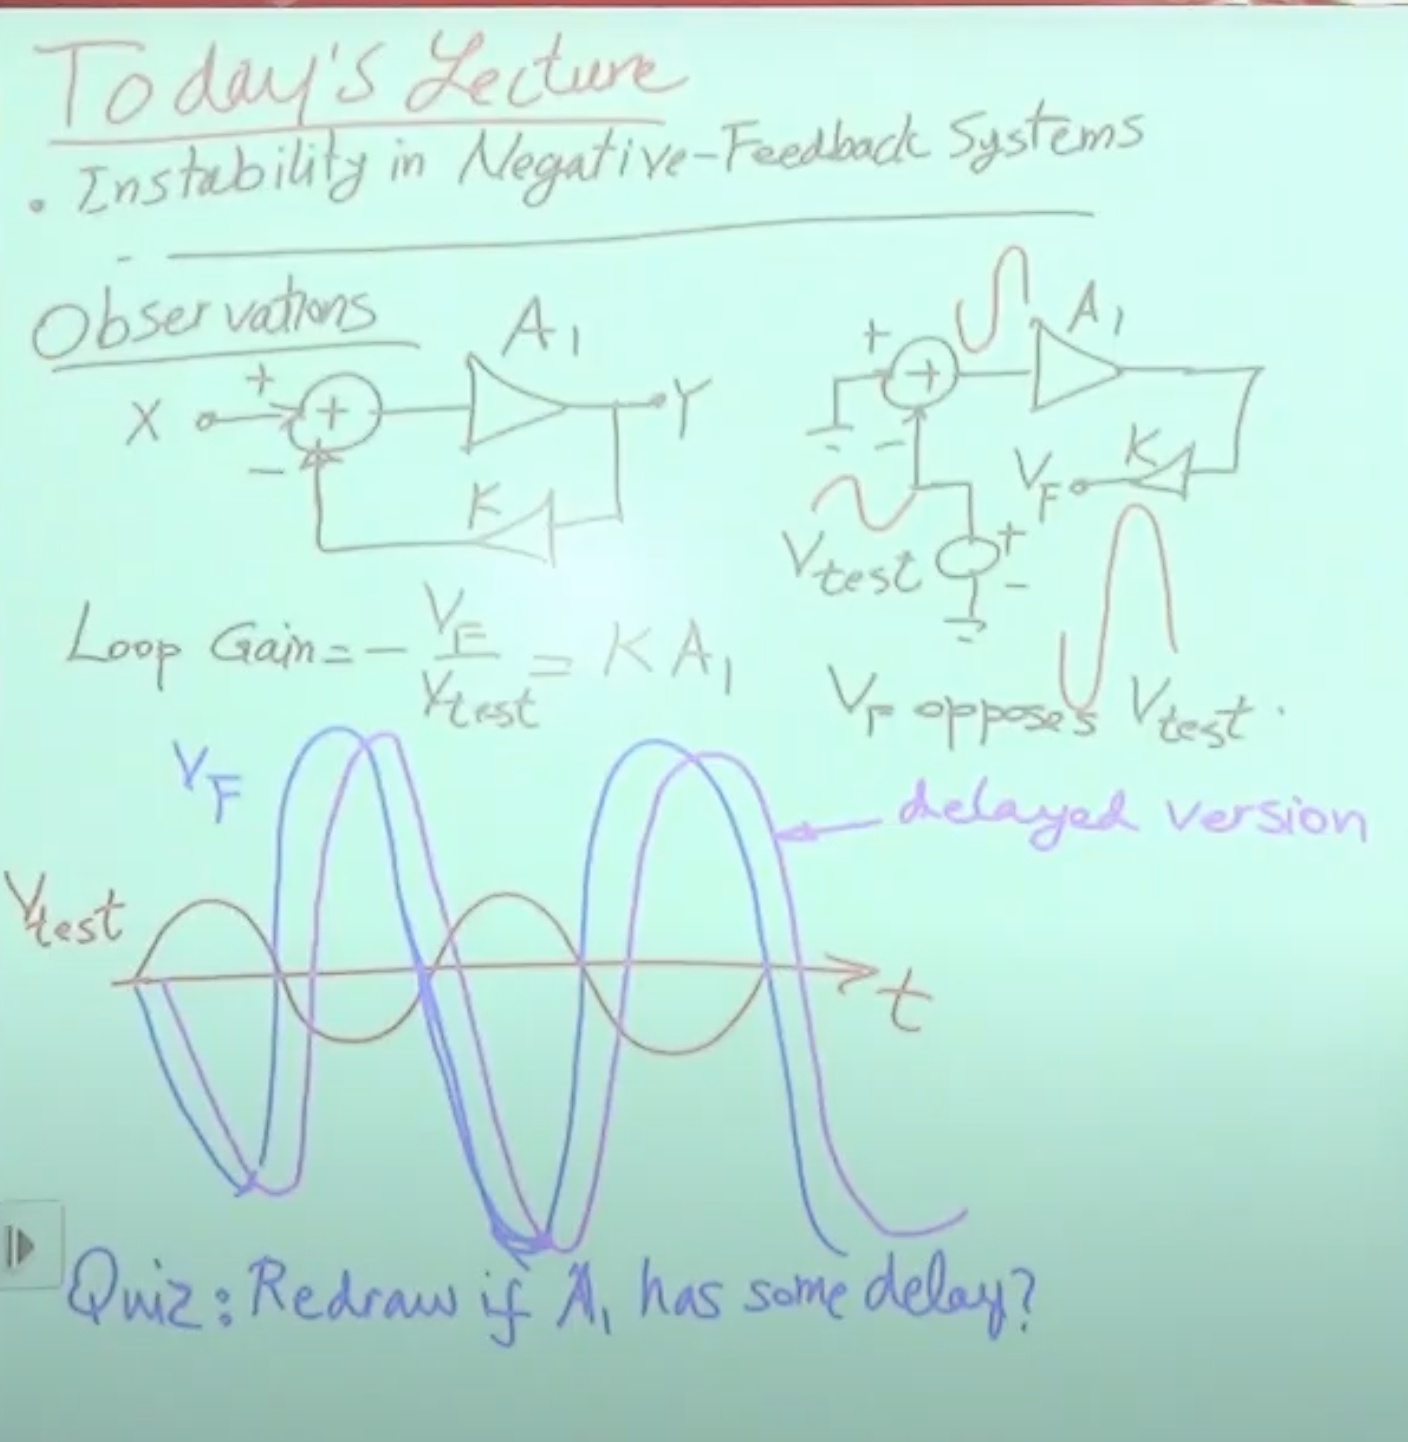 Today's Lecture
• Instability in Negative-Feedback Systems
Observations
X + - + A1 Y
K
+ - + A1
K
VF
Vtest + -
Loop Gain = - VF / Vtest = K A1
VF opposes Vtest.
VF
delayed version
Vtest
t
Quiz: Redraw if A1 has some delay?